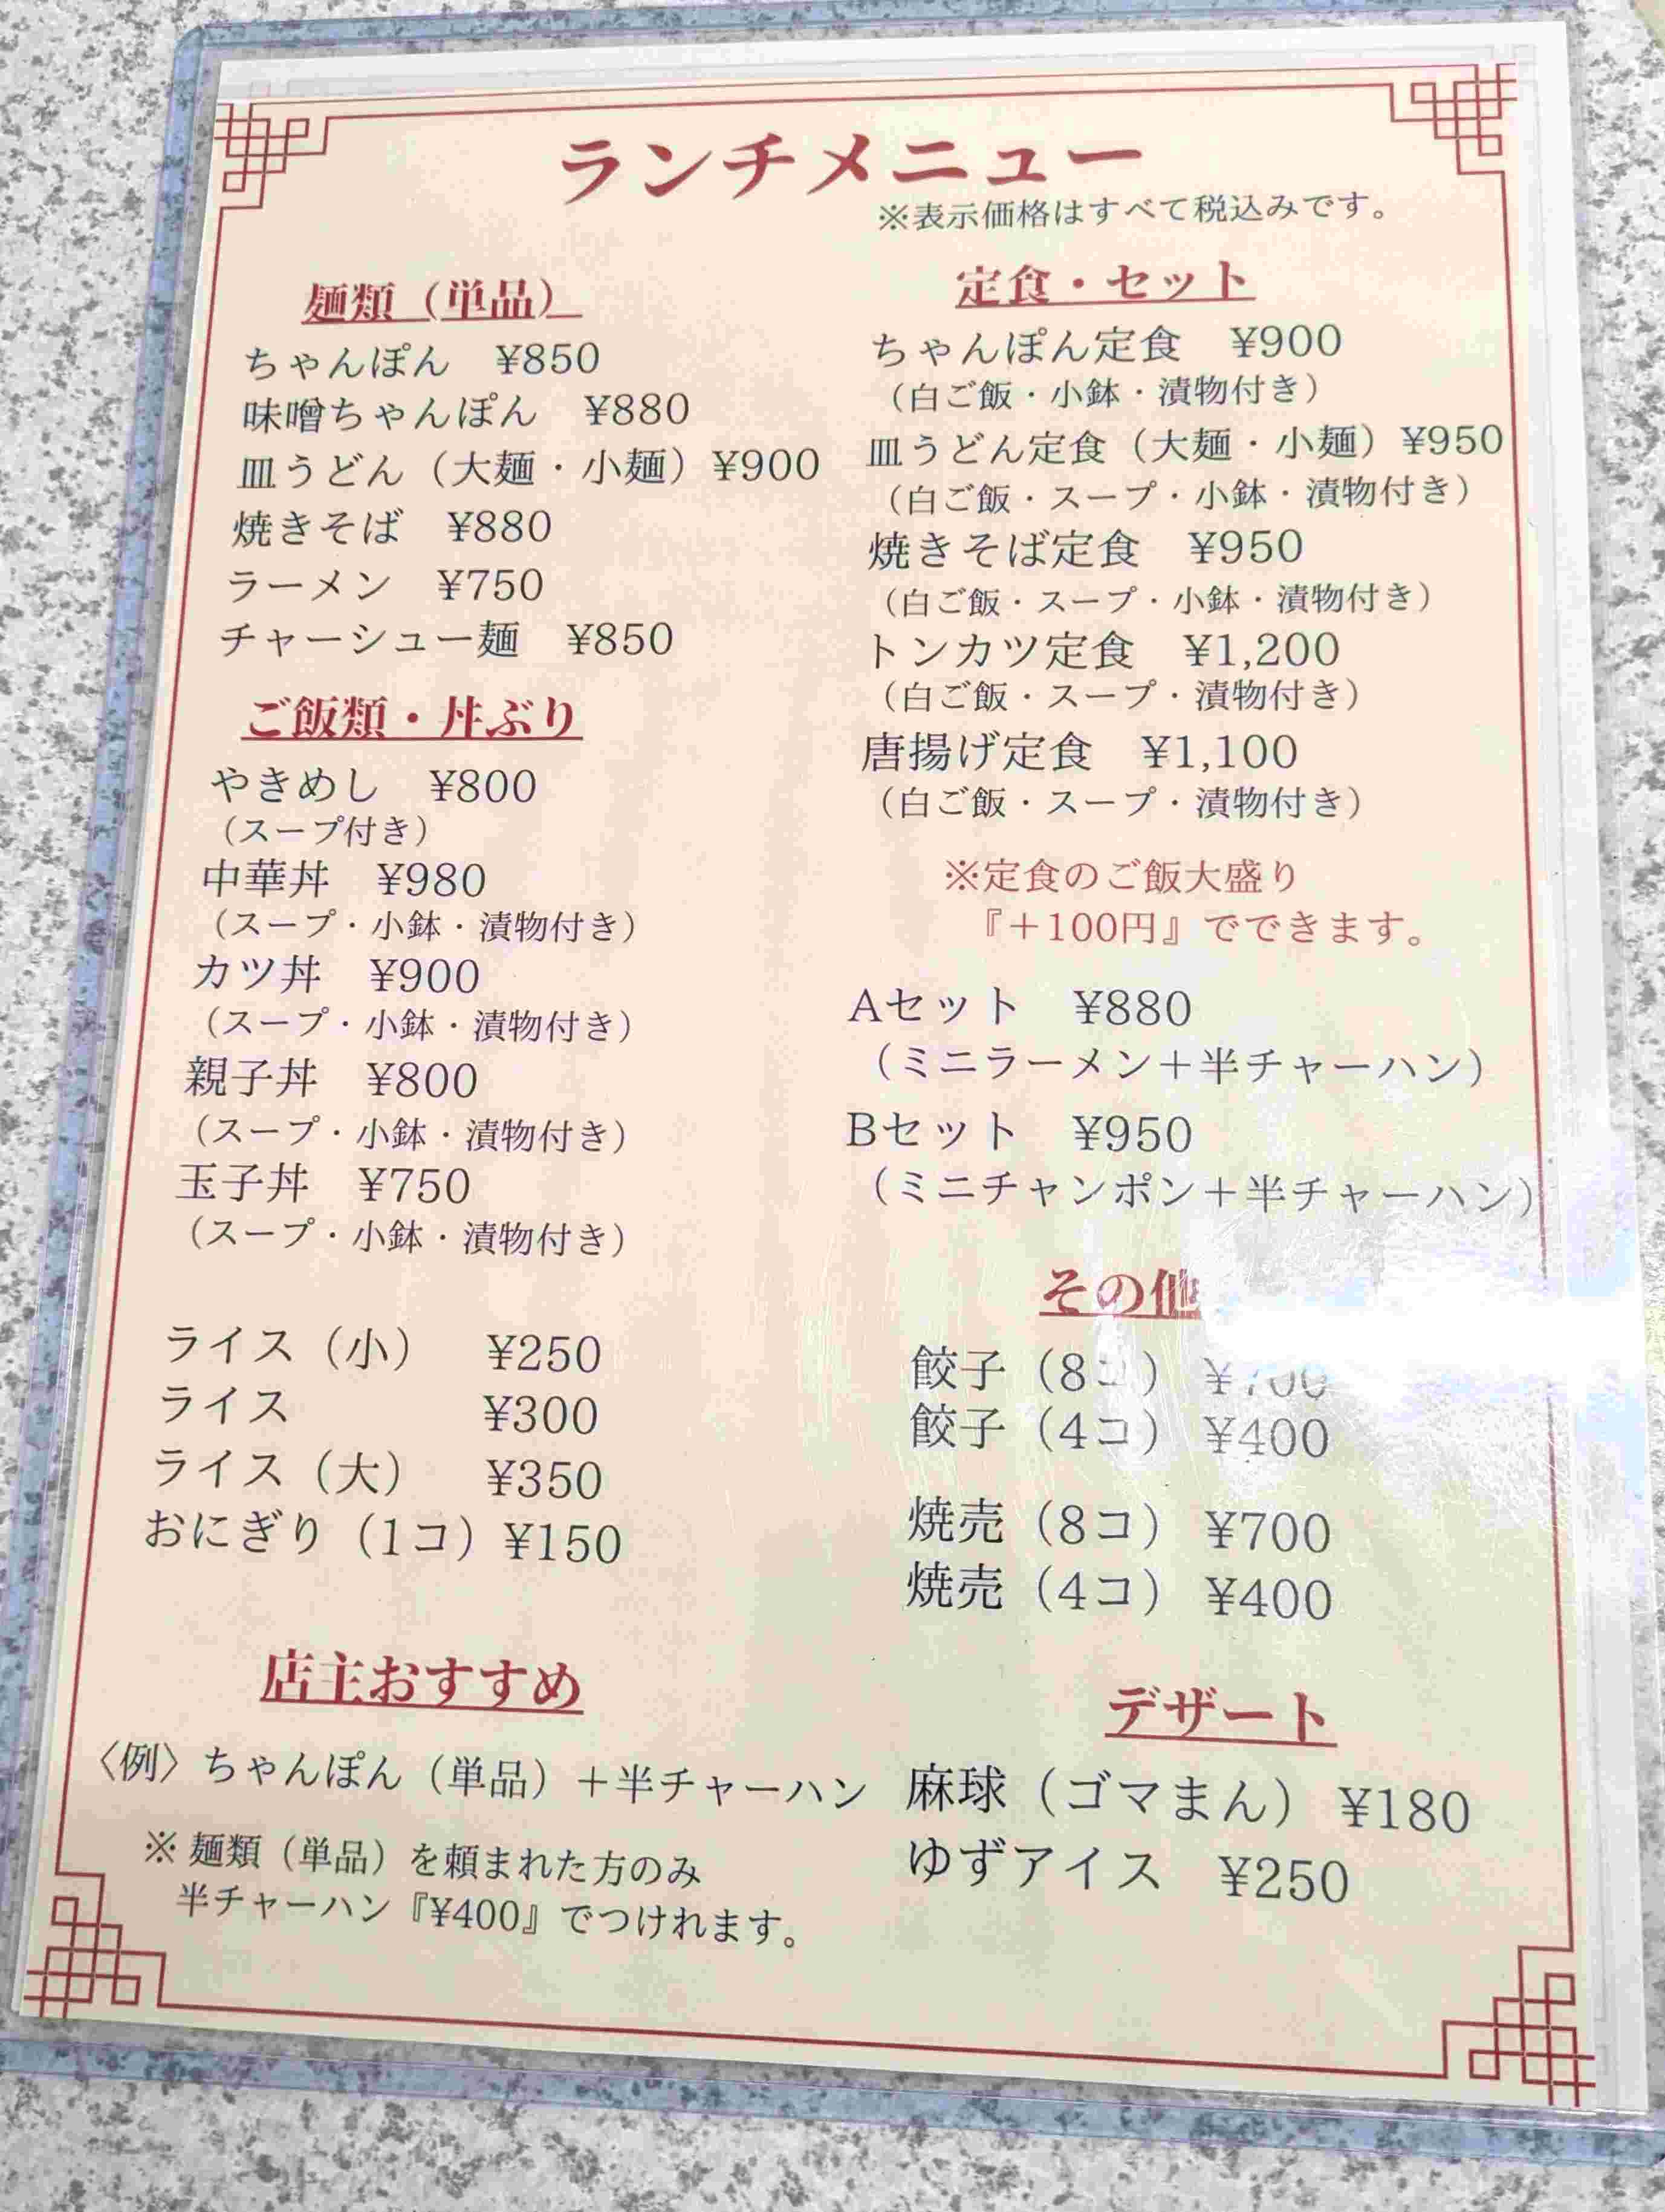 ランチメニュー
※表示価格はすべて税込みです。
麺類（単品）
ちゃんぽん ¥850
味噌ちゃんぽん ¥880
皿うどん（大麺・小麺）¥900
焼きそば ¥880
ラーメン ¥750
チャーシュー麺 ¥850
ご飯類・丼ぶり
やきめし ¥800
（スープ付き）
中華丼 ¥980
（スープ・小鉢・漬物付き）
カツ丼 ¥900
（スープ・小鉢・漬物付き）
親子丼 ¥800
（スープ・小鉢・漬物付き）
玉子丼 ¥750
（スープ・小鉢・漬物付き）
ライス（小） ¥250
ライス ¥300
ライス（大） ¥350
おにぎり（1コ）¥150
店主おすすめ
〈例〉ちゃんぽん（単品）＋半チャーハン
※ 麺類（単品）を頼まれた方のみ
半チャーハン『¥400』でつけれます。
定食・セット
ちゃんぽん定食 ¥900
（白ご飯・小鉢・漬物付き）
皿うどん定食（大麺・小麺）¥950
（白ご飯・スープ・小鉢・漬物付き）
焼きそば定食 ¥950
（白ご飯・スープ・小鉢・漬物付き）
トンカツ定食 ¥1,200
（白ご飯・スープ・漬物付き）
唐揚げ定食 ¥1,100
（白ご飯・スープ・漬物付き）
※定食のご飯大盛り
『＋100円』でできます。
Aセット ¥880
（ミニラーメン＋半チャーハン）
Bセット ¥950
（ミニチャンポン＋半チャーハン）
その他
餃子（8コ）
餃子（4コ） ¥400
焼売（8コ） ¥700
焼売（4コ） ¥400
デザート
麻球（ゴマまん） ¥180
ゆずアイス ¥250